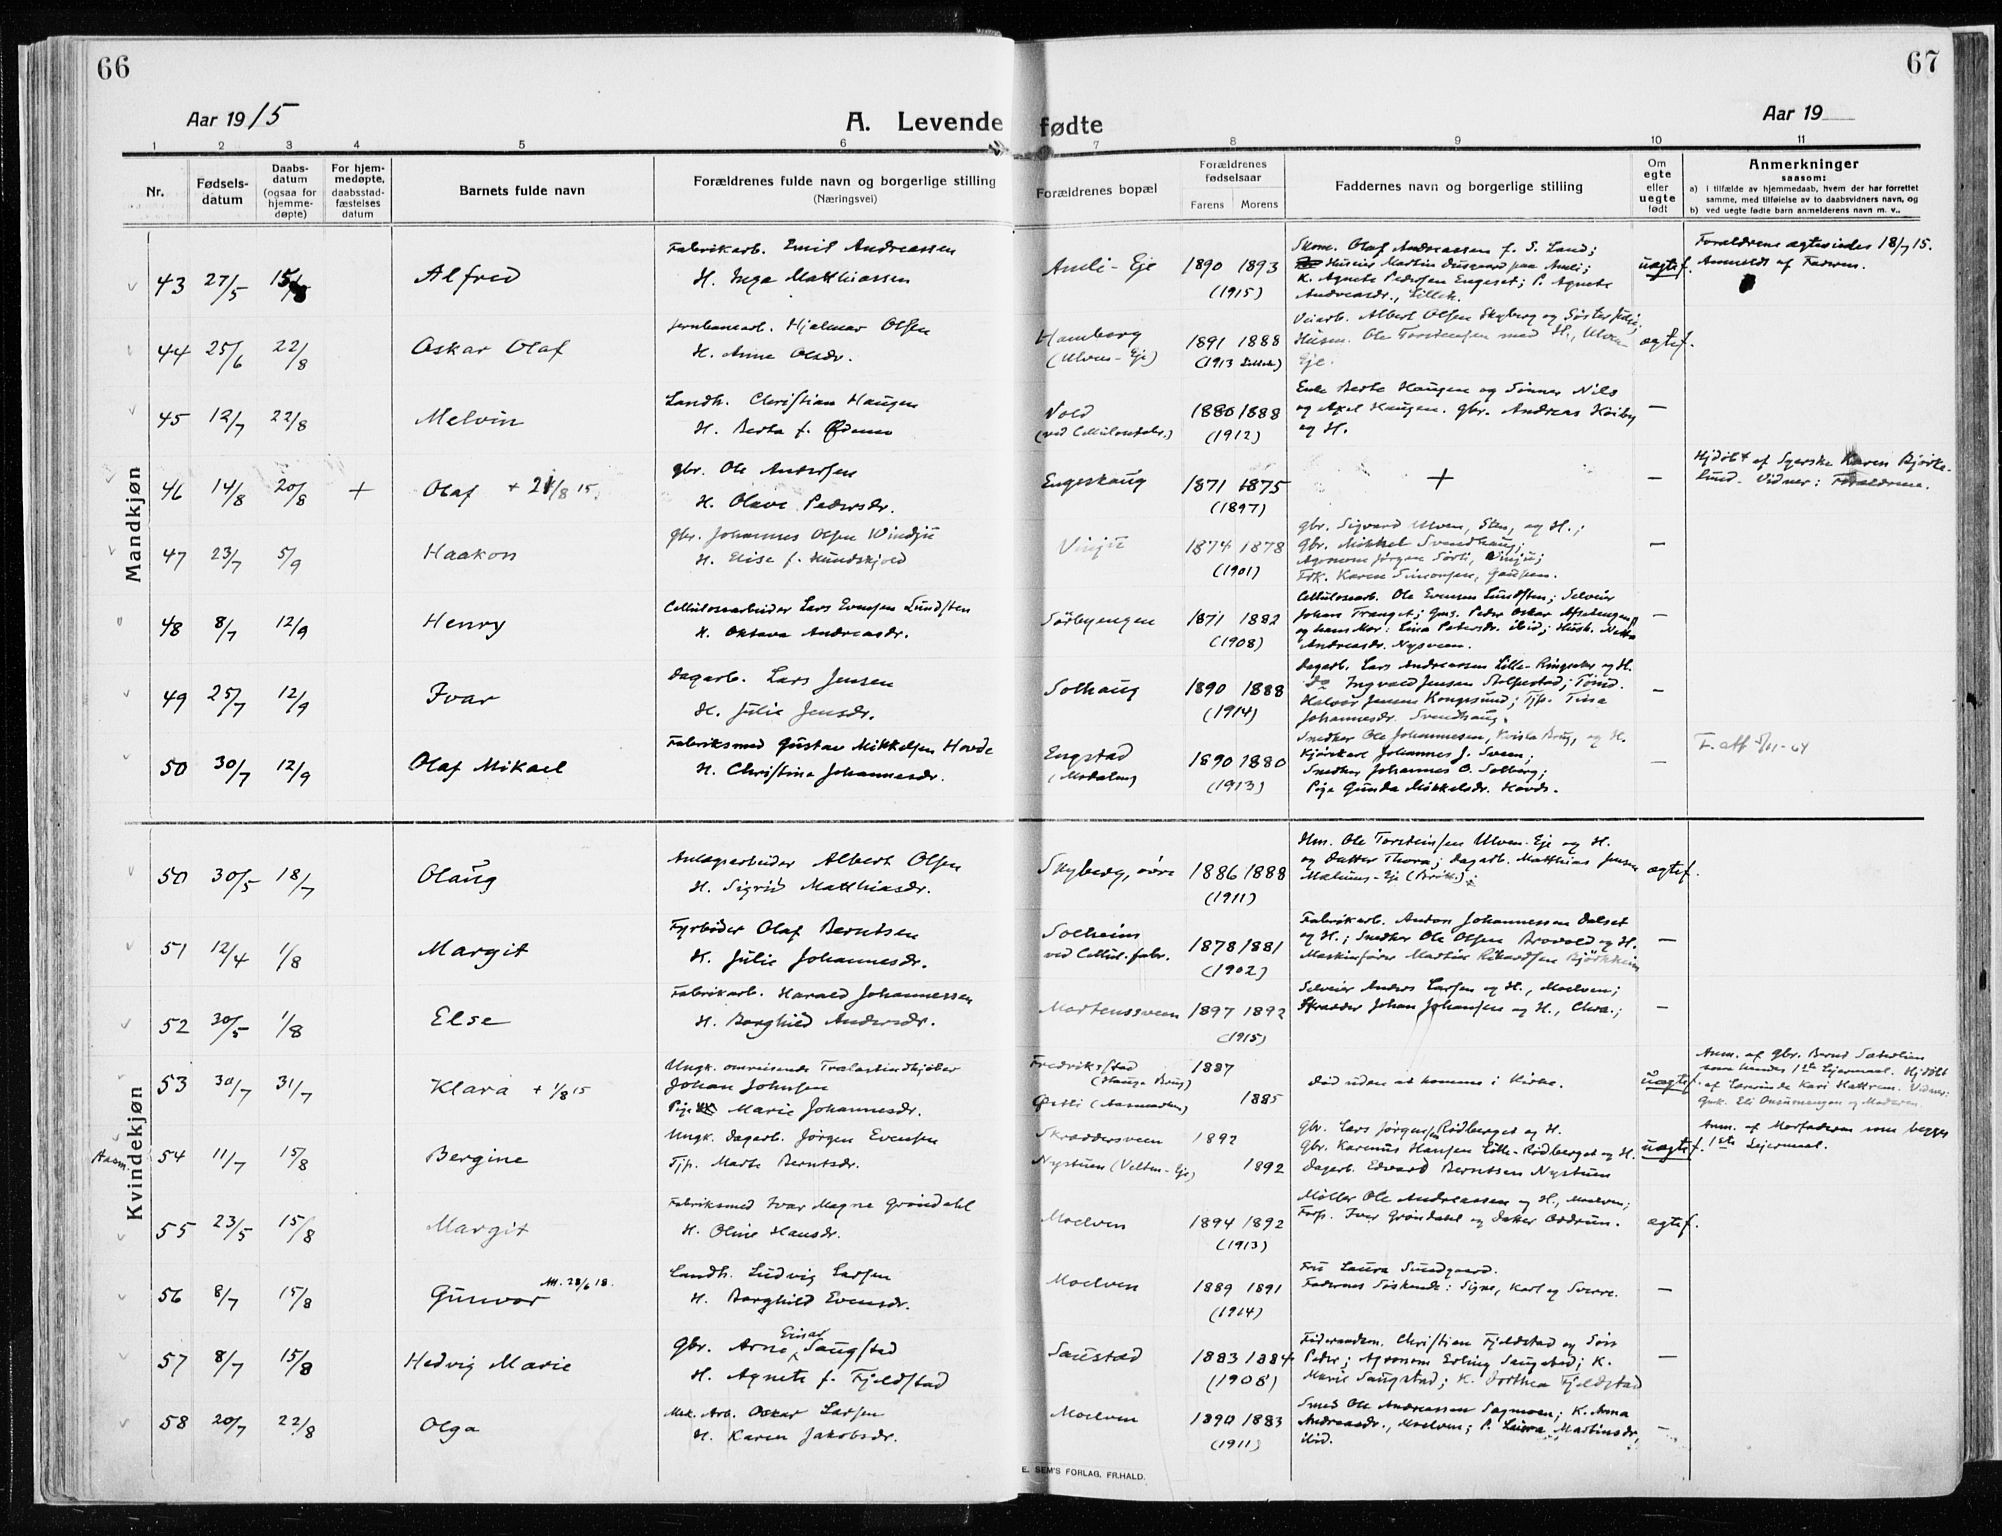 66
67
Aar 1915
A. Levende fødte
Aar 19
1 2 3 4 5 6 7 8 9 10 11
Nr.
Fødsels-
datum
Daabs-
datum
(ogsaa for
hjemme-
døpte)
For hjem-
medøpte,
daabsstad-
fæstelses
datum
Barnets fulde navn
Forældrenes fulde navn og borgerlige stilling
(Næringsvei)
Forældrenes bopæl
Forældrenes
fødselsaar
Farens Morens
Faddernes navn og borgerlige stilling
Om
egte
eller
uegte
født
Anmerkninger
saasom:
a) i tilfælde av hjemmedaab, hvem der har forrettet
samme, med tilføielse av to daabsvidners navn, og
b) ved uegte fødte barn anmelderens navn m. v..
Mandkjøn
43 27/5 15/8 Alfred
Fabrikarb. Emil Andreassen
H. Inga Matthiassen
Amli-Eje 1890 1893
(1915)
Skom. Olaf Andreassen f. S. Land;
K. Agnete Pedersen Engeset; P. Agnete
Andreasdr., Lilleh.
uægtef.
Forældrene ægtevindes 18/7 15.
Anmeldt af Faderen.
44 25/6 22/8 Oskar Olaf
Jernbanearb. Hjalmar Olsen
H. Anne Olsdr.
Hamborg
(Ulven-Eje)
1891 1888
(1913 Lilleh.)
Veiarb. Albert Olsen Skyberg og Søster
Husm. Ole Torstensen med H., Ulven
Eje.
ægtef.
45 12/7 22/8 Melvin
Landh. Christian Haugen
H. Berta f. Ødemo
Vold
(ved Cellulosefabr.)
1880 1888
(1912)
Enke Berte Haugen og Sønner Nils
og Axel Haugen. gbr. Andreas Hoiby
og H.
—
46 14/8 20/8 + Olaf + 21/8 15.
gbr. Ole Andersen
H. Olave Pedersdr.
Engeskaug 1871 1875
(1897)
+
—
Hjdøbt af Syerske Karen Bjørke-
lund. Vidner: Forældrene.
47 23/7 5/9 Haakon
gbr. Johannes Olsen Windju
H. Elise f. Hundskjold
Vinju 1874 1878
(1901)
gbr. Sigvard Ulven, Sten, og H.;
gbr. Mikkel Svendhaug;
Agronom Jørgen Sørli, Vinju;
Frk. Karen Simonsen, Gaupen.
—
48 8/7 12/9 Henry
Cellulosearbeider Lars Evensen Lundsten
H. Oktava Andreasdr.
Sørbyengen 1871 1882
(1908)
Cellulosearb. Ole Evensen Lundsten; Selveier
Johan Franget; Gms. Peder Oskar Afselengen
og hans Mor: Lina Petersdr. ibid; Hush. Netta
Andreasdr. Nysveen.
—
49 25/7 12/9 Ivar
Dagarb. Lars Jensen
H. Julie Jensdr.
Solhaug 1890 1888
(1914)
Dagarb. Lars Andreassen Lille-Ringsaker og H.
Do Ingvald Jensen Stolpestad; Tømd.
Halvor Jensen Kongssund; Tjp. Tina
Johannesdr. Svendhaug.
—
50 30/7 12/9 Olaf Mikael
Fabriksmed Gustav Mikkelsen Hovde
H. Christine Johannesdr.
Engstad
(Mødalen)
1890 1880
(1913)
Snedker Ole Johannesen, Kvisle Brug, og H.
Kjørekarl Johannes J. Sveen;
Snedker Johannes O. Solberg;
Pige Gunda Mikkelsdr. Hovde.
—
F. att 5/11-64
Kvindekjøn
50 30/5 18/7 Olaug
Anlægsarbeider Albert Olsen
H. Sigrid Matthiasdr.
Skyberg, øvre 1886 1888
(1911)
Hm. Ole Torsteinsen Ulven-Eje og H.
og Datter Thora; Dagarb. Matthias Jensen
Mælums-Eje (Birik.);
ægtef.
51 12/4 1/8 Margit
Fyrbøder Olaf Berntsen
H. Julie Johannesdr.
Solheim
ved Cellul.fabr.
1878 1881
(1902)
Fabrikarb. Anton Johannessen Dalset
og H.; Snedker Ole Olsen Brovold og H.
Maskinfører Martin Rikardsen Bjørkheim
—
52 30/5 1/8 Else
Fabrikarb. Harald Johannessen
H. Borghild Andersdr.
Mortenssveen 1897 1892
(1915)
Selveier Anders Larsen og H., Moelven;
Skrædder Johan Johansen og H., Chra.;
—
53 30/7 31/7 Klara + 1/8 15
Ungk. omreisende Trælastindkjøber
Johan Johnsen
Pige Marie Johannesdr.
Fredriksstad
(Hauge Brug)
1887
Østli (Aasmarken)
1885
Død uden at komme i Kirke.
uægtef.
Anm. af gbr. Bernt Sætherlien
som hendes 1ste Leiermaal. Hjdøbt
af Lærerinde Kari Hattrem. Vidner:
Gmk. Eli Onsumengen og Moderen.
Aasm.
54 11/7 15/8 Bergine
Ungk. Dagarb. Jørgen Evensen
Tjp. Marte Berntsdr.
Skræddersveen 1892
Nystuen (Velten-Eje) 1892
gbr. Lars Jørgensen Rødberget og H.
gbr. Karenus Hansen Lille-Rødberget og H.
Dagarb. Edvard Berntsen Nystuen
uægtef.
Anm. af Morfaderen som begges
1ste Leiermaal.
55 23/5 15/8 Margit
Fabriksmed Ivar Magne Grøndahl
H. Oline Hansdr.
Moelven 1894 1892
(1913)
Møller Ole Andreassen og H., Moelven;
Forp. Iver Grøndahl og Datter Oddrun.
ægtef.
56 8/7 15/8 Gunvor Att. 28/6 18.
Landh. Ludvig Larsen
H. Borghild Evensdr.
Moelven 1889 1891
(1914)
Fru Laura Smedgaard.
Faderens Søskende: Signe, Karl og Sverre.
—
57 8/7 15/8 Hedvig Marie
Gbr. Arne Einar Saugstad
H. Agnete f. Fjeldstad
Saustad 1883 1884
(1908)
Føderaadsm. Christian Fjeldstad og Søn
Peder; Agronom Erling Saugstad; K.
Marie Saugstad; K. Dorthea Fjeldstad
—
58 20/7 22/8 Olga
Mek. Arb. Oskar Larsen
H. Karen Jakobsdr.
Moelven 1890 1883
(1911)
Smed Ole Andreassen Sagmoen; K. Anna
Andreasdr., Moelven; P. Laura Martinsdr,
ibid.
—
E. SEM'S FORLAG, FR.HALD.